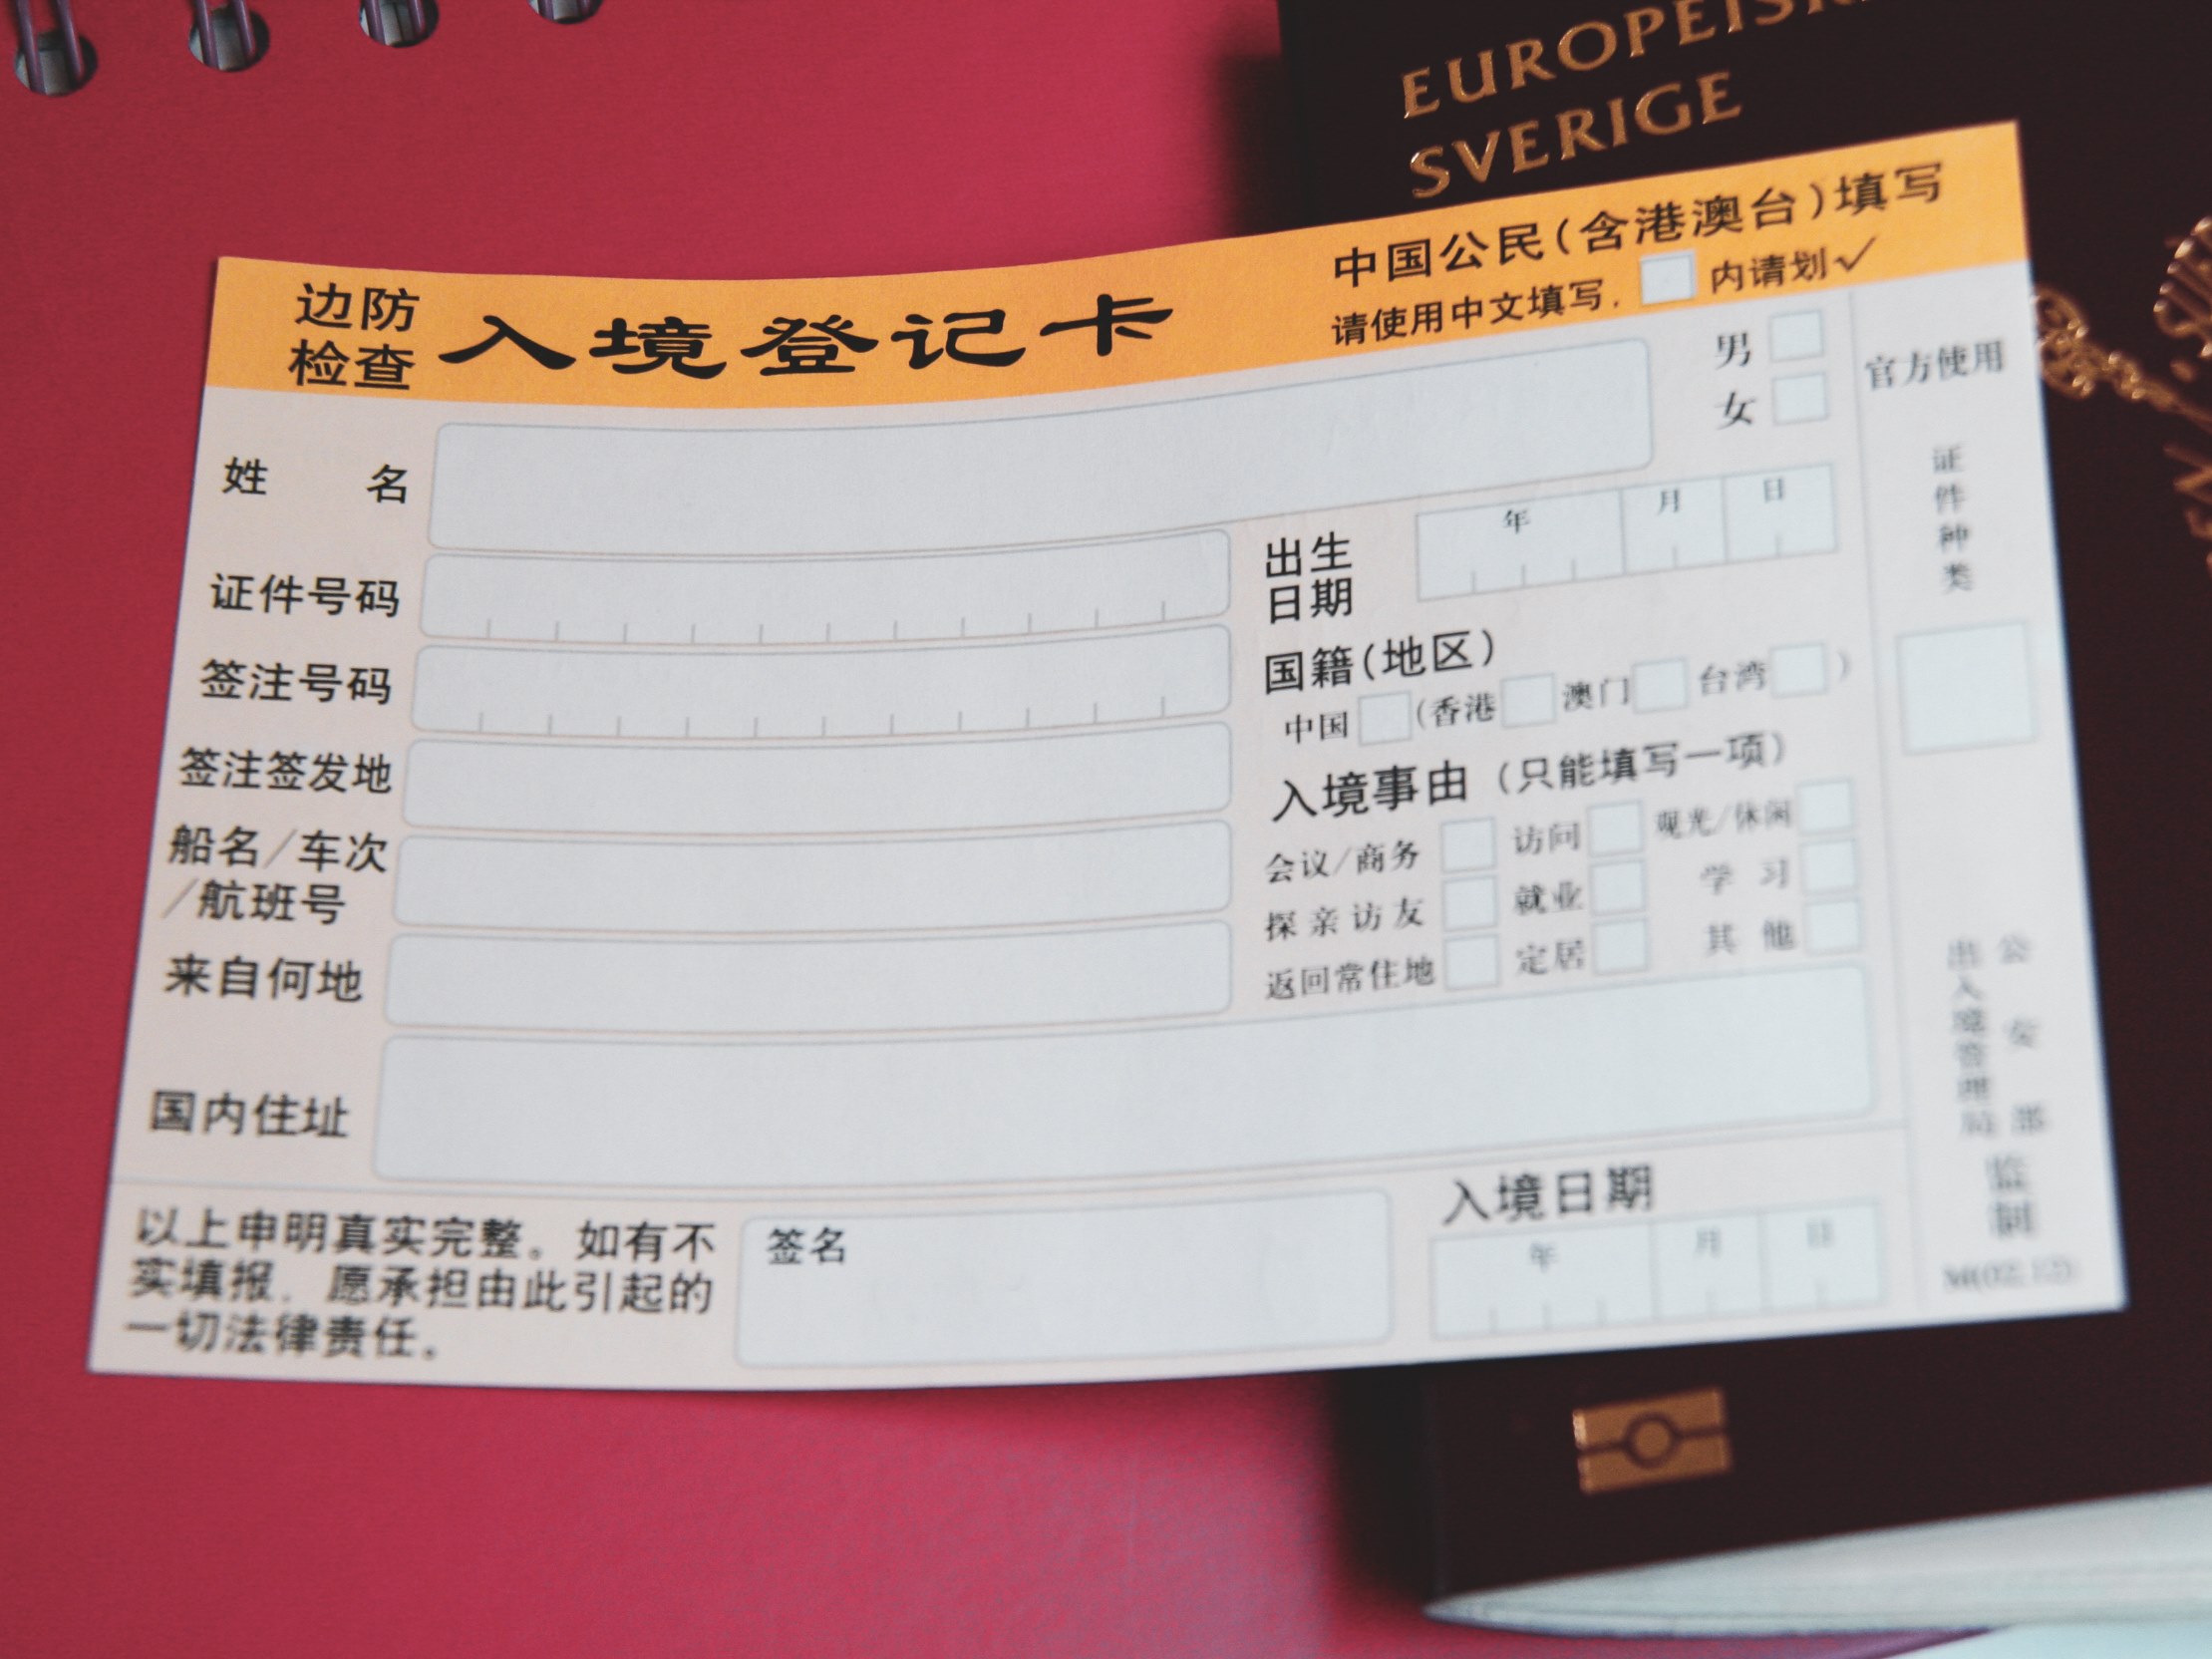 EUROPEISK
SVERIGE
边防检查
入境登记卡
中国公民(含港澳台)填写
请使用中文填写. 内请划✓
姓 名
男
女
官方使用
证件种类
证件号码
出生日期
年 月 日
签注号码
国籍(地区)
中国 (香港 澳门 台湾 )
签注签发地
入境事由 (只能填写一项)
会议/商务 访问 观光/休闲
船名/车次
/航班号
探亲访友 就业 学 习
返回常住地 定居 其 他
来自何地
国内住址
公安部
出入境管理局
监制
以上申明真实完整。如有不
实填报. 愿承担由此引起的
一切法律责任.
签名
入境日期
年 月 日